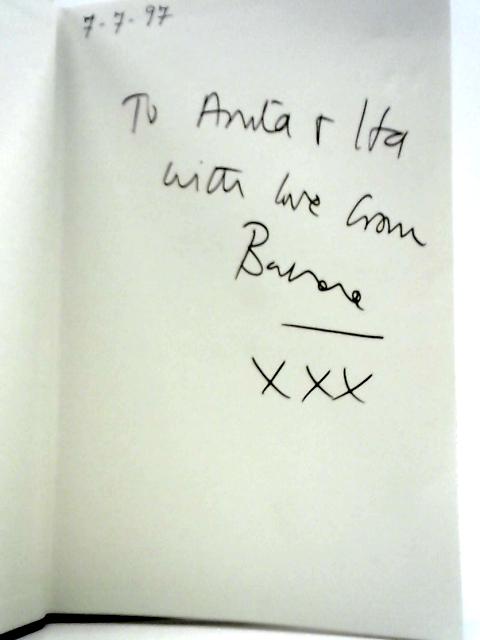 7-7-97
To Anita + Ita
with love from
Barbara
XXX